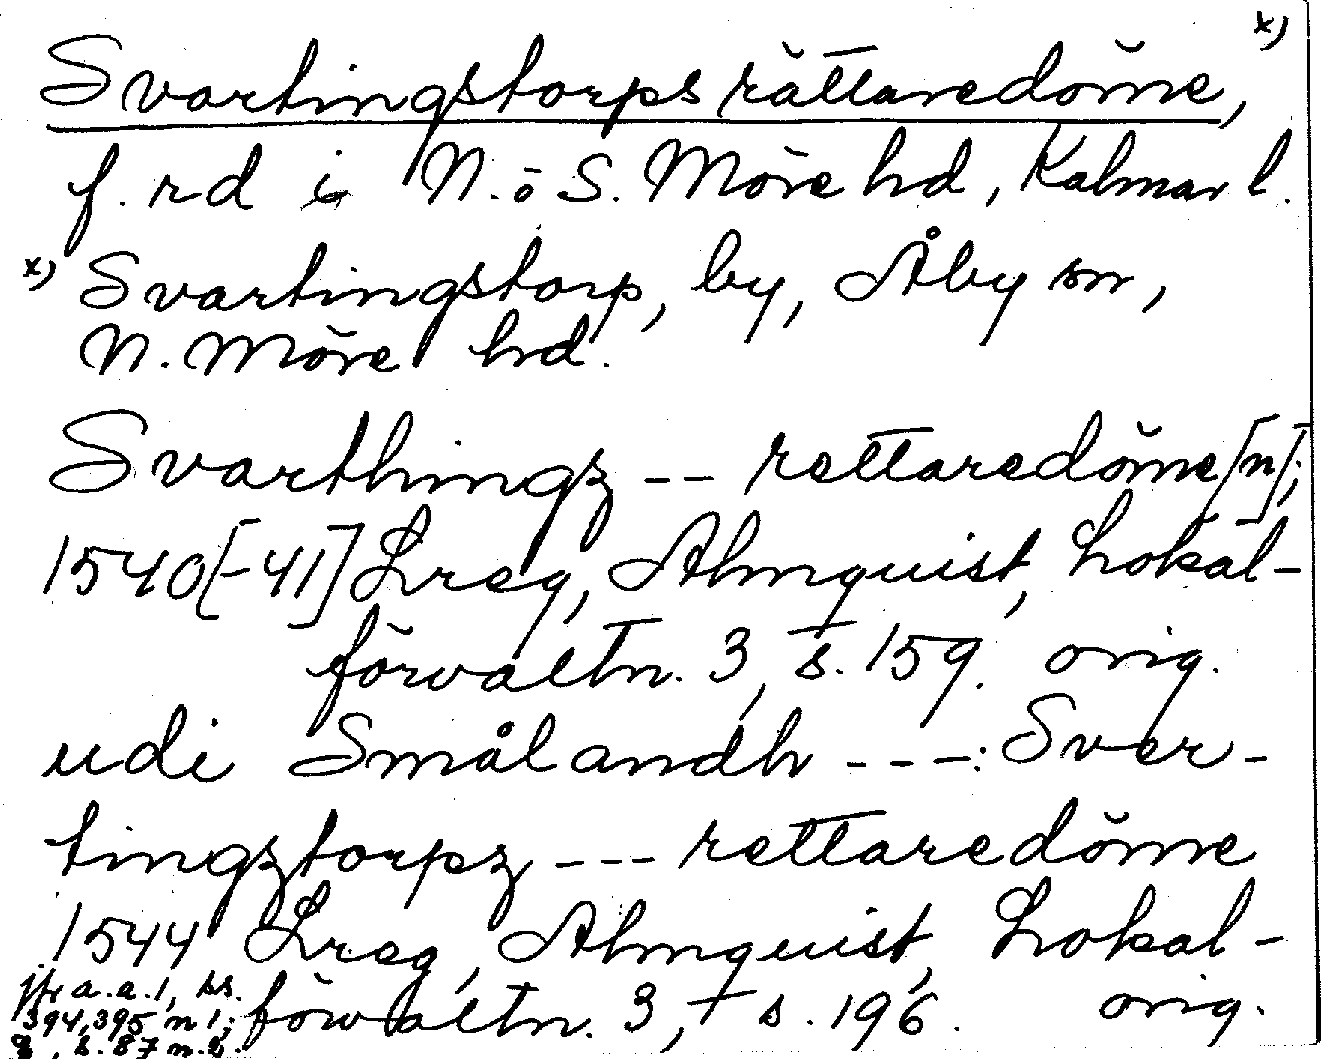 x)
Svartingstorps rättaredöme,
f. rd i N. o S. Möre hd, Kalmar l.
x) Svartingstorp, by, Åby sn,
N. Möre hd.
Svarthingz -- rettaredöme[n];
1540[-41] Lreg, Almquist, Lokal-
förvaltn. 3, s. 159. orig.
udi Smålandh ---: Sver-
tingztorpz --- rettaredöme
1544 Lreg, Almquist, Lokal-
förvaltn. 3, s. 196. orig.
jfr a.a. 1, ss.
394, 395 n 1;
s. 87 n.